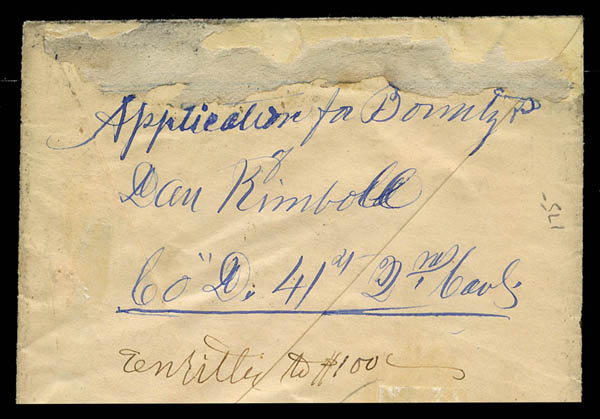 Application for Bounty
of
Dan Kimball
Co" D. 41st 2nd Cavl.
Entitled to $100
175